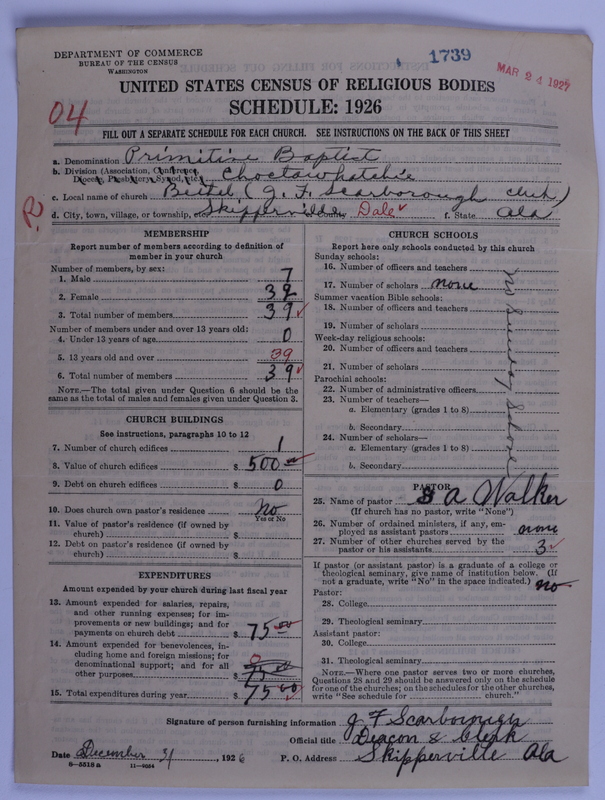 DEPARTMENT OF COMMERCE
BUREAU OF THE CENSUS
WASHINGTON
1739
MAR 24 1927
UNITED STATES CENSUS OF RELIGIOUS BODIES
SCHEDULE: 1926
04
FILL OUT A SEPARATE SCHEDULE FOR EACH CHURCH. SEE INSTRUCTIONS ON THE BACK OF THIS SHEET
a. Denomination Primitive Baptist
b. Division (Association, Conference, Diocese, Presbytery, Synod, etc.) Choctawhatchie
c. Local name of church (J. F. Scarborough clerk)
d. City, town, village, or township, Skipperville County, Dale f. State Ala
R
MEMBERSHIP
Report number of members according to definition of
member in your church
Number of members, by sex:
1. Male 7
2. Female 32
3. Total number of members 39
Number of members under and over 13 years old:
4. Under 13 years of age 0
5. 13 years old and over 39
6. Total number of members 39
NOTE.—The total given under Question 6 should be the
same as the total of males and females given under Question 3.
CHURCH BUILDINGS
See instructions, paragraphs 10 to 12
7. Number of church edifices 1
8. Value of church edifices $ 500 00
9. Debt on church edifices $ 0
10. Does church own pastor's residence? No
Yes or No
11. Value of pastor's residence (if owned by
church) $
12. Debt on pastor's residence (if owned by
church) $
EXPENDITURES
Amount expended by your church during last fiscal year
13. Amount expended for salaries, repairs,
and other running expenses; for im-
provements or new buildings; and for
payments on church debt $ 75 00
14. Amount expended for benevolences, in-
cluding home and foreign missions; for
denominational support; and for all
other purposes $ 75 00 0
15. Total expenditures during year $ 75 00
CHURCH SCHOOLS
Report here only schools conducted by this church
Sunday schools:
16. Number of officers and teachers
17. Number of scholars none
Summer vacation Bible schools:
18. Number of officers and teachers
19. Number of scholars
Week-day religious schools:
20. Number of officers and teachers
21. Number of scholars
Parochial schools:
22. Number of administrative officers
23. Number of teachers—
a. Elementary (grades 1 to 8)
b. Secondary
24. Number of scholars—
a. Elementary (grades 1 to 8)
b. Secondary
no Sunday School
PASTOR
25. Name of pastor S A Walker
(If church has no pastor, write "None")
26. Number of ordained ministers, if any, em-
ployed as assistant pastors none
27. Number of other churches served by the
pastor or his assistants 3
If pastor (or assistant pastor) is a graduate of a college or
theological seminary, give name of institution below. (If
not a graduate, write "No" in the space indicated.) no
Pastor:
28. College
29. Theological seminary
Assistant pastor:
30. College
31. Theological seminary
NOTE.—Where one pastor serves two or more churches,
Questions 28 and 29 should be answered only on the schedule
for one of the churches; on the schedules for the other churches,
write "See schedule for church."
Signature of person furnishing information J F Scarborough
Official title Deacon & clerk
Date December 31, 1926 P. O. Address Skipperville Ala
8—5518 a 11—9054